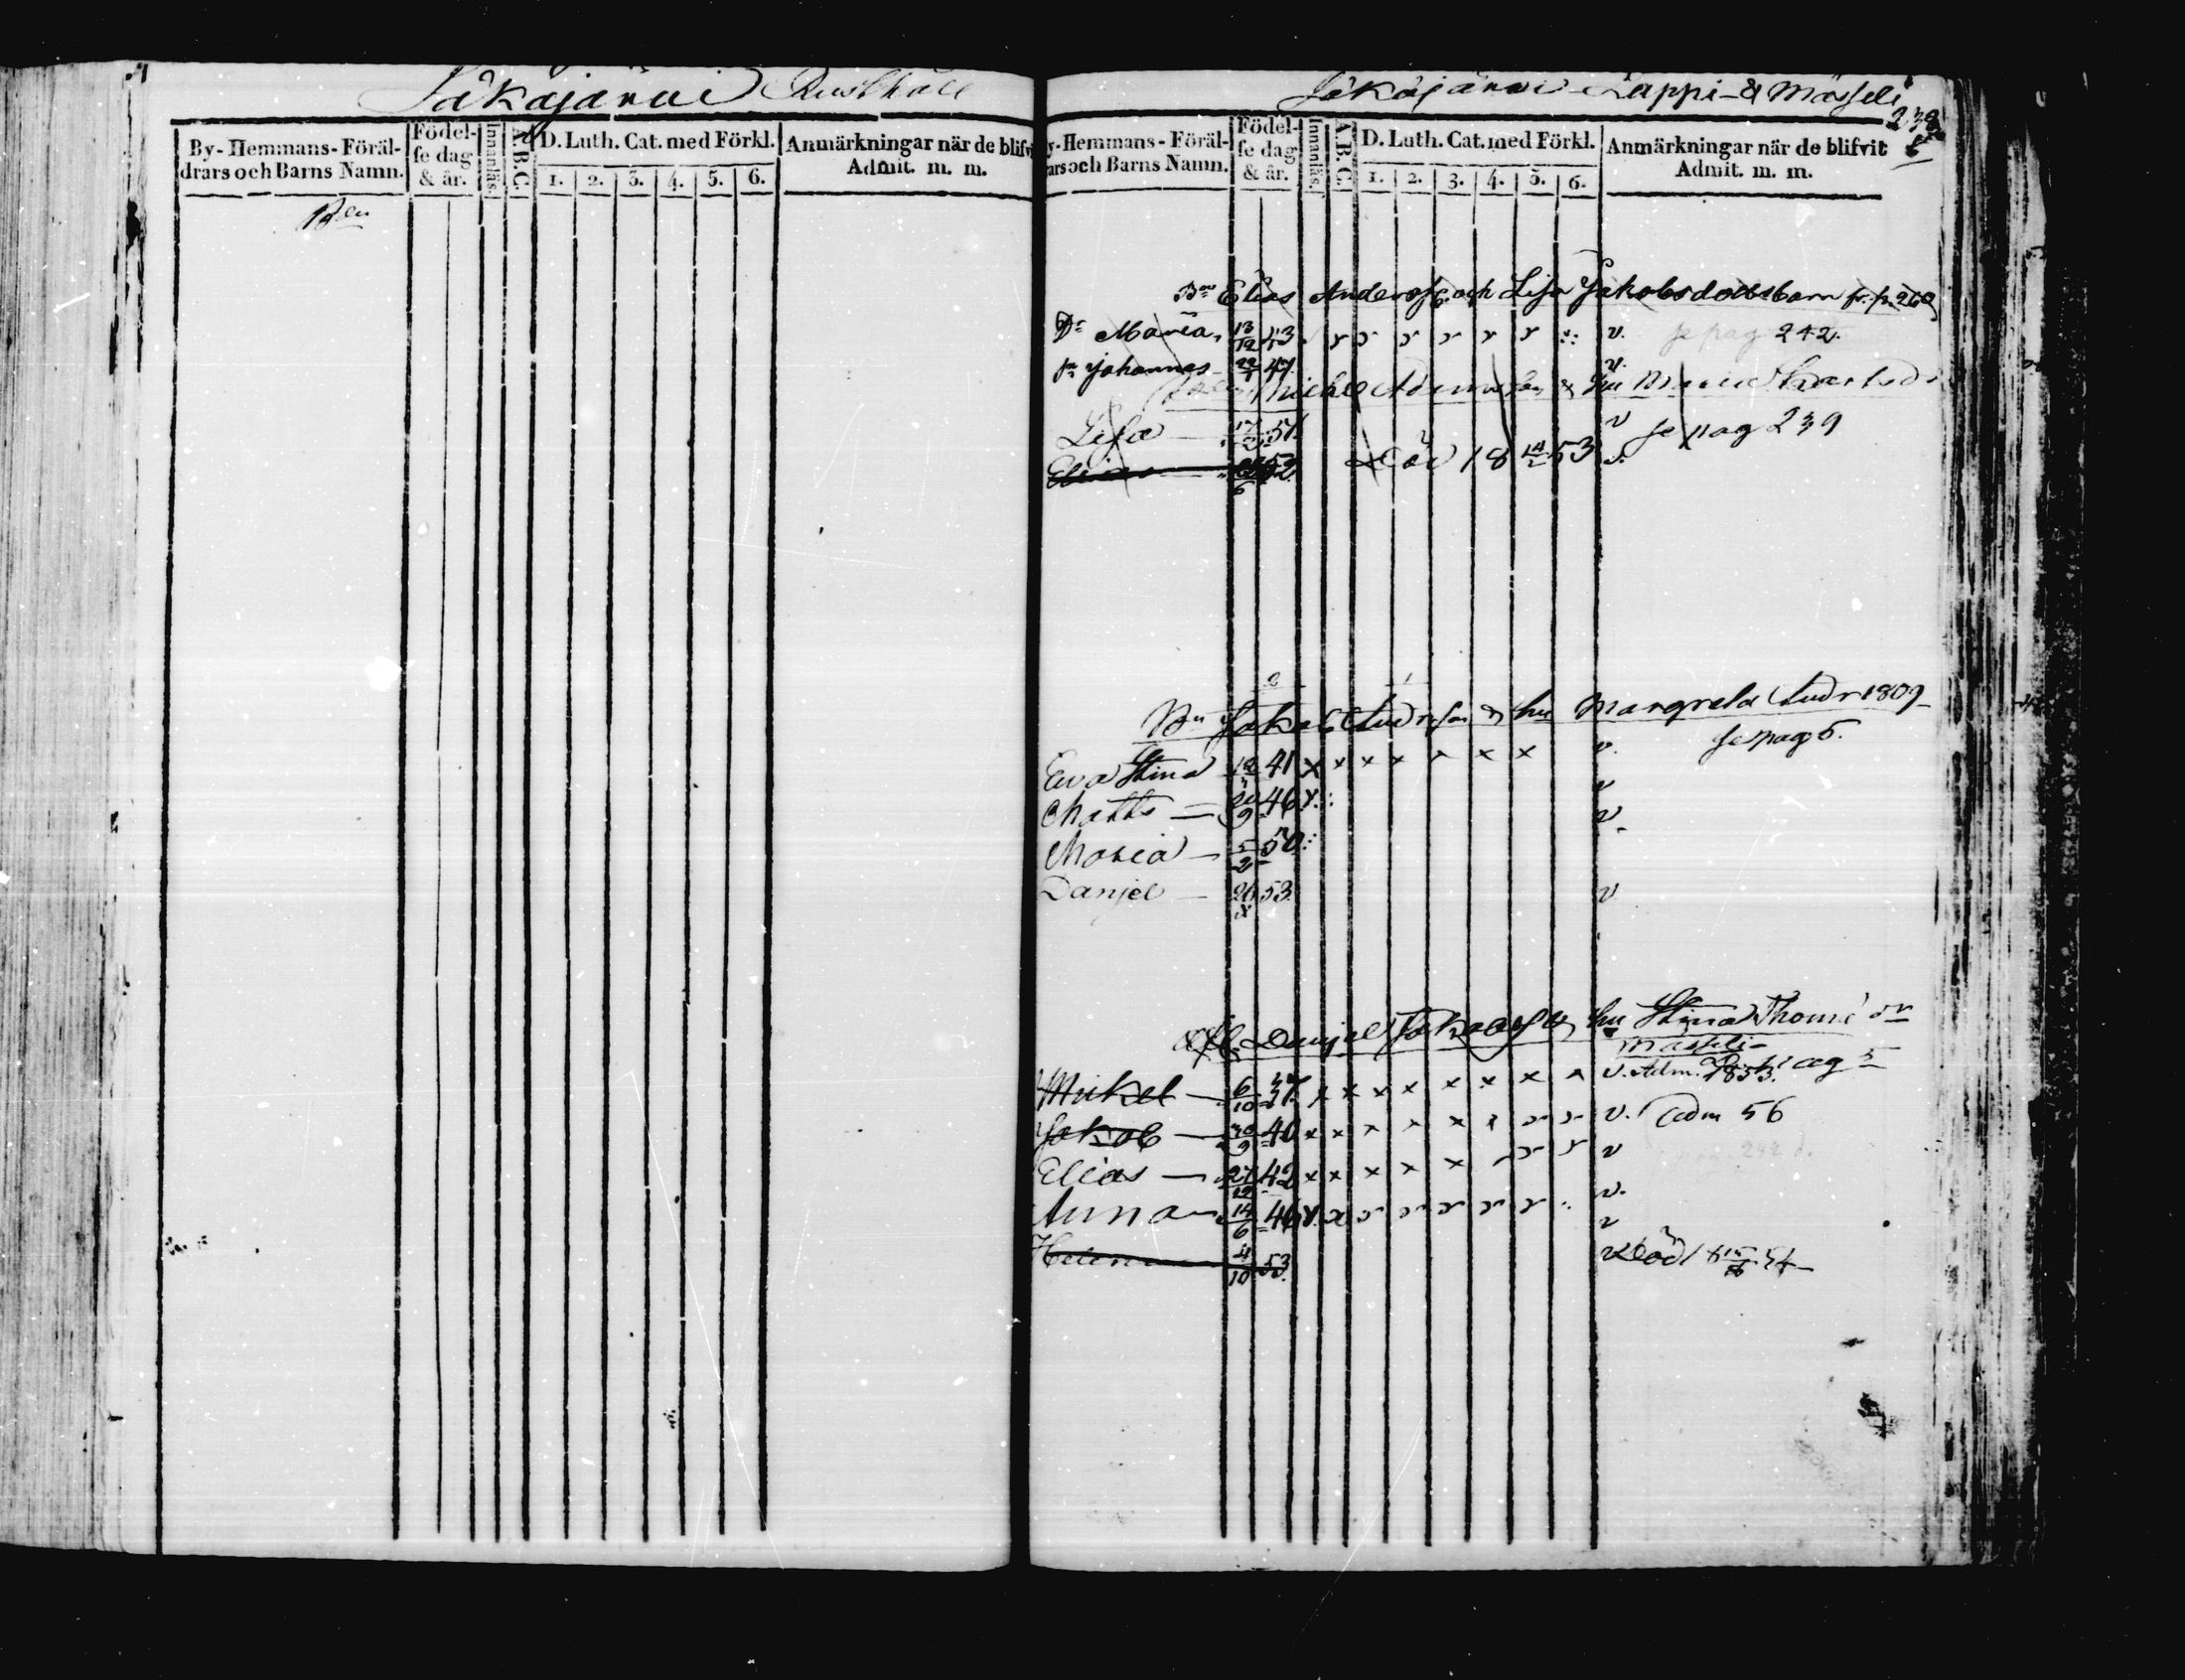 Jäkäjärvi Rusthåll
By-Hemmans-Föräl-
drars och Barns Namn.
Födel-
se dag
& år.
Innanläs.
A.B.C.
D. Luth. Cat. med Förkl.
1. 2. 3. 4. 5. 6.
Anmärkningar när de blifv
Admit. m. m.
Jäkäjärvi Lappi & Mässeli
238
y-Hemmans-Föräl-
ars och Barns Namn.
Födel-
se dag
& år.
Innanläs.
A.B.C.
D. Luth. Cat. med Förkl.
1. 2. 3. 4. 5. 6.
Anmärkningar när de blifvit
Admit. m. m.
Bn Elias Andersson och Lisa Jakobsdotts barn fr. p. 260
Dr Maria 13/12 43 v. se pag 242.
sn Johannes 22/1 47. v.
Michel & hu Maria
Lisa 17/3 51. v se pag 239
Elias 52 Död 18 53 v.
Bn Jakob Andrsson & hu Margreta Andr 1809
se pag 6.
Eva Stina 41 x x x x x x v.
Matts 20/9 46 v
Maria 5/2 50 v.
Danjel 53 v
Danjel Jakobss & hu Stina Thomé dr
Mässeli
Mickel 6/10 37. x x x x x x x v. Adm. 1853. pag 5
Jakob 30/9 40 x x x x x v. Adm 56
Elias 27/12 42 x x x x x v
Anna 14/6 46 v.
Helena 4/10 53 v Död 18 54